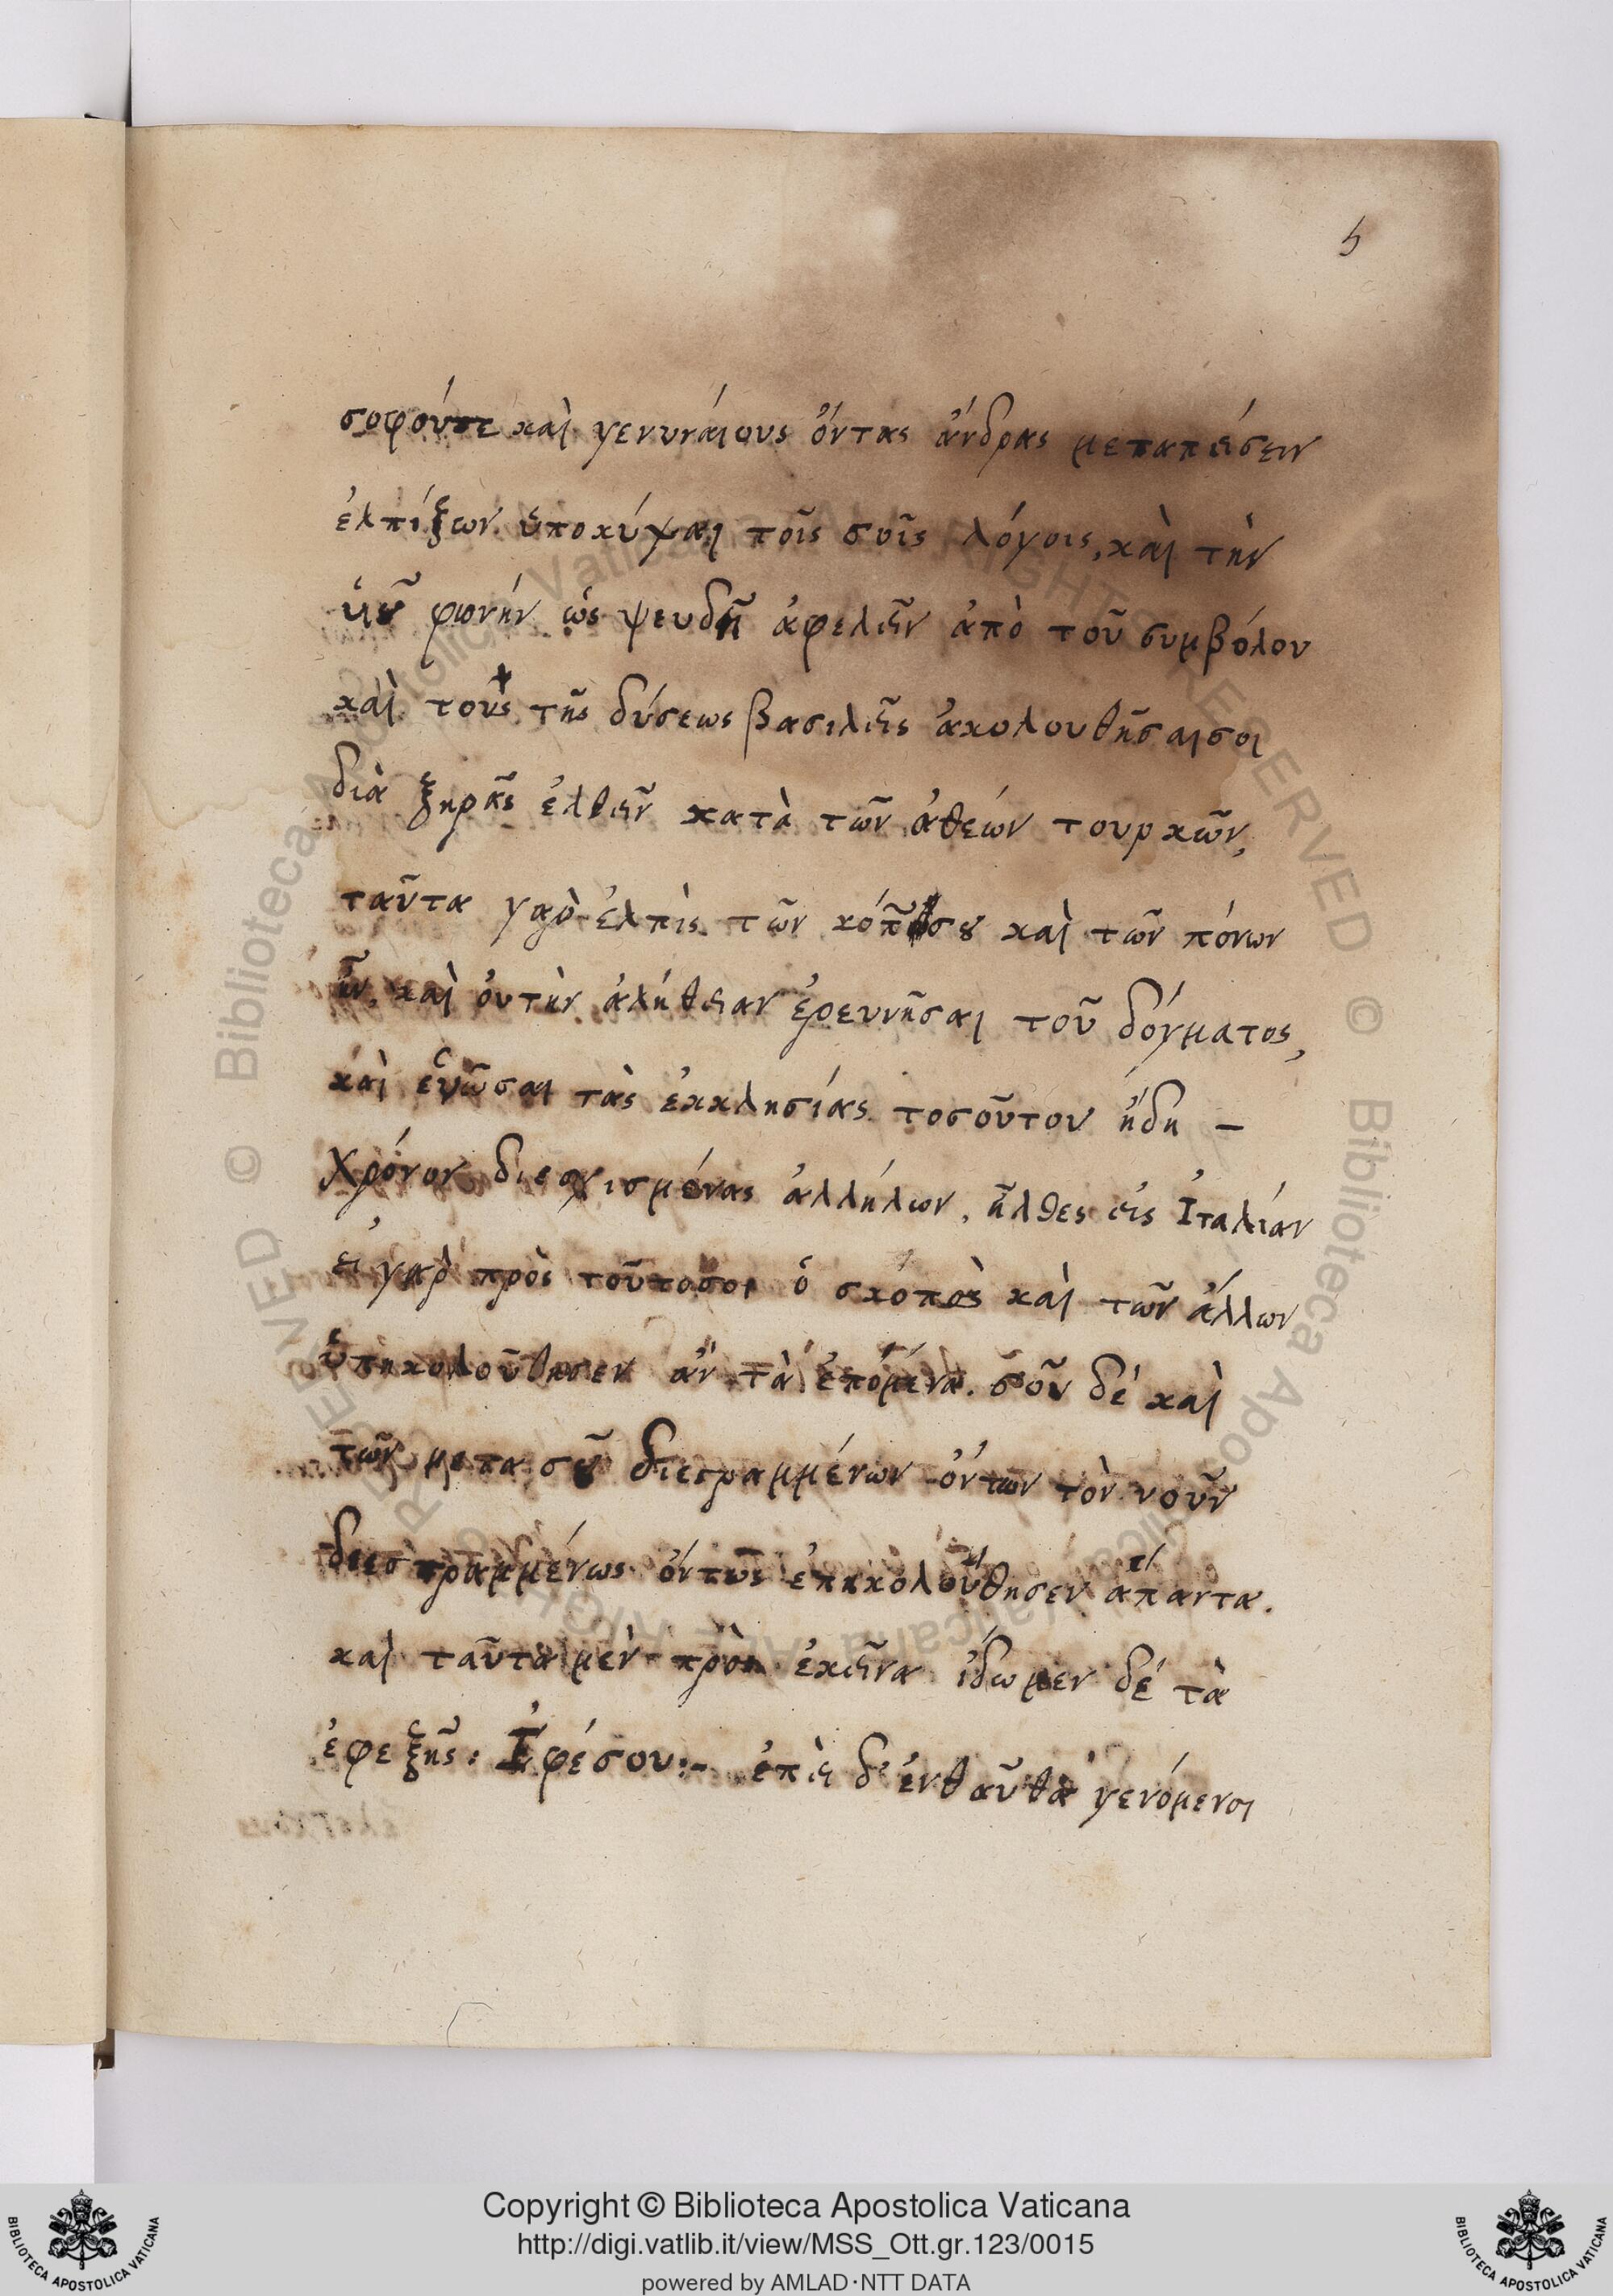 5
σοφούστε καὶ γενναίους ὄντας ἄνδρας μεταπείσειν
ἐλπίζων ὑποκύψαι τοῖς σοῖς λόγοις, καὶ τὴν
υἱοῦ φωνὴν ὡς ψευδῆ ἀφελεῖν ἀπὸ τοῦ συμβόλου
καὶ τοὺς τῆς δύσεως βασιλεῖς ἀκολουθῆσαι σοι
διὰ ξηρᾶς ἐλθεῖν κατὰ τῶν ἀθέων τουρκῶν,
ταῦτα γὰρ ἐλπὶς τῶν σου καὶ τῶν πόνων
ἦν, καὶ οὐ τὴν ἀλήθειαν ἐρευνῆσαι τοῦ δόγματος,
καὶ ἑνῶσαι τὰς ἐκκλησίας τοσοῦτον ἤδη –
χρόνον διεσχισμένας ἀλλήλων, ἦλθες εἰς Ἰταλίαν
εἰ γὰρ πρὸς τοῦτο σοι ὁ σκοπὸς καὶ τῶν ἄλλων
ὑπηκολούθησεν ἂν τὰ ἑπόμενα. σοῦ δὲ καὶ
τῶν μετα σοῦ διεστραμμένων ὄντων τὸν νοῦν
διεστραμμένως ὄντως ἐπηκολούθησεν ἅπαντα.
καὶ ταῦτα μὲν πρὸς ἐκεῖνα ἴδωμεν δὲ τὰ
ἐφεξῆς: Ἐφέσου:– ἐπεὶ δ' ἐνθαῦθα γενόμενοι
Copyright © Biblioteca Apostolica Vaticana
http://digi.vatlib.it/view/MSS_Ott.gr.123/0015
powered by AMLAD·NTT DATA